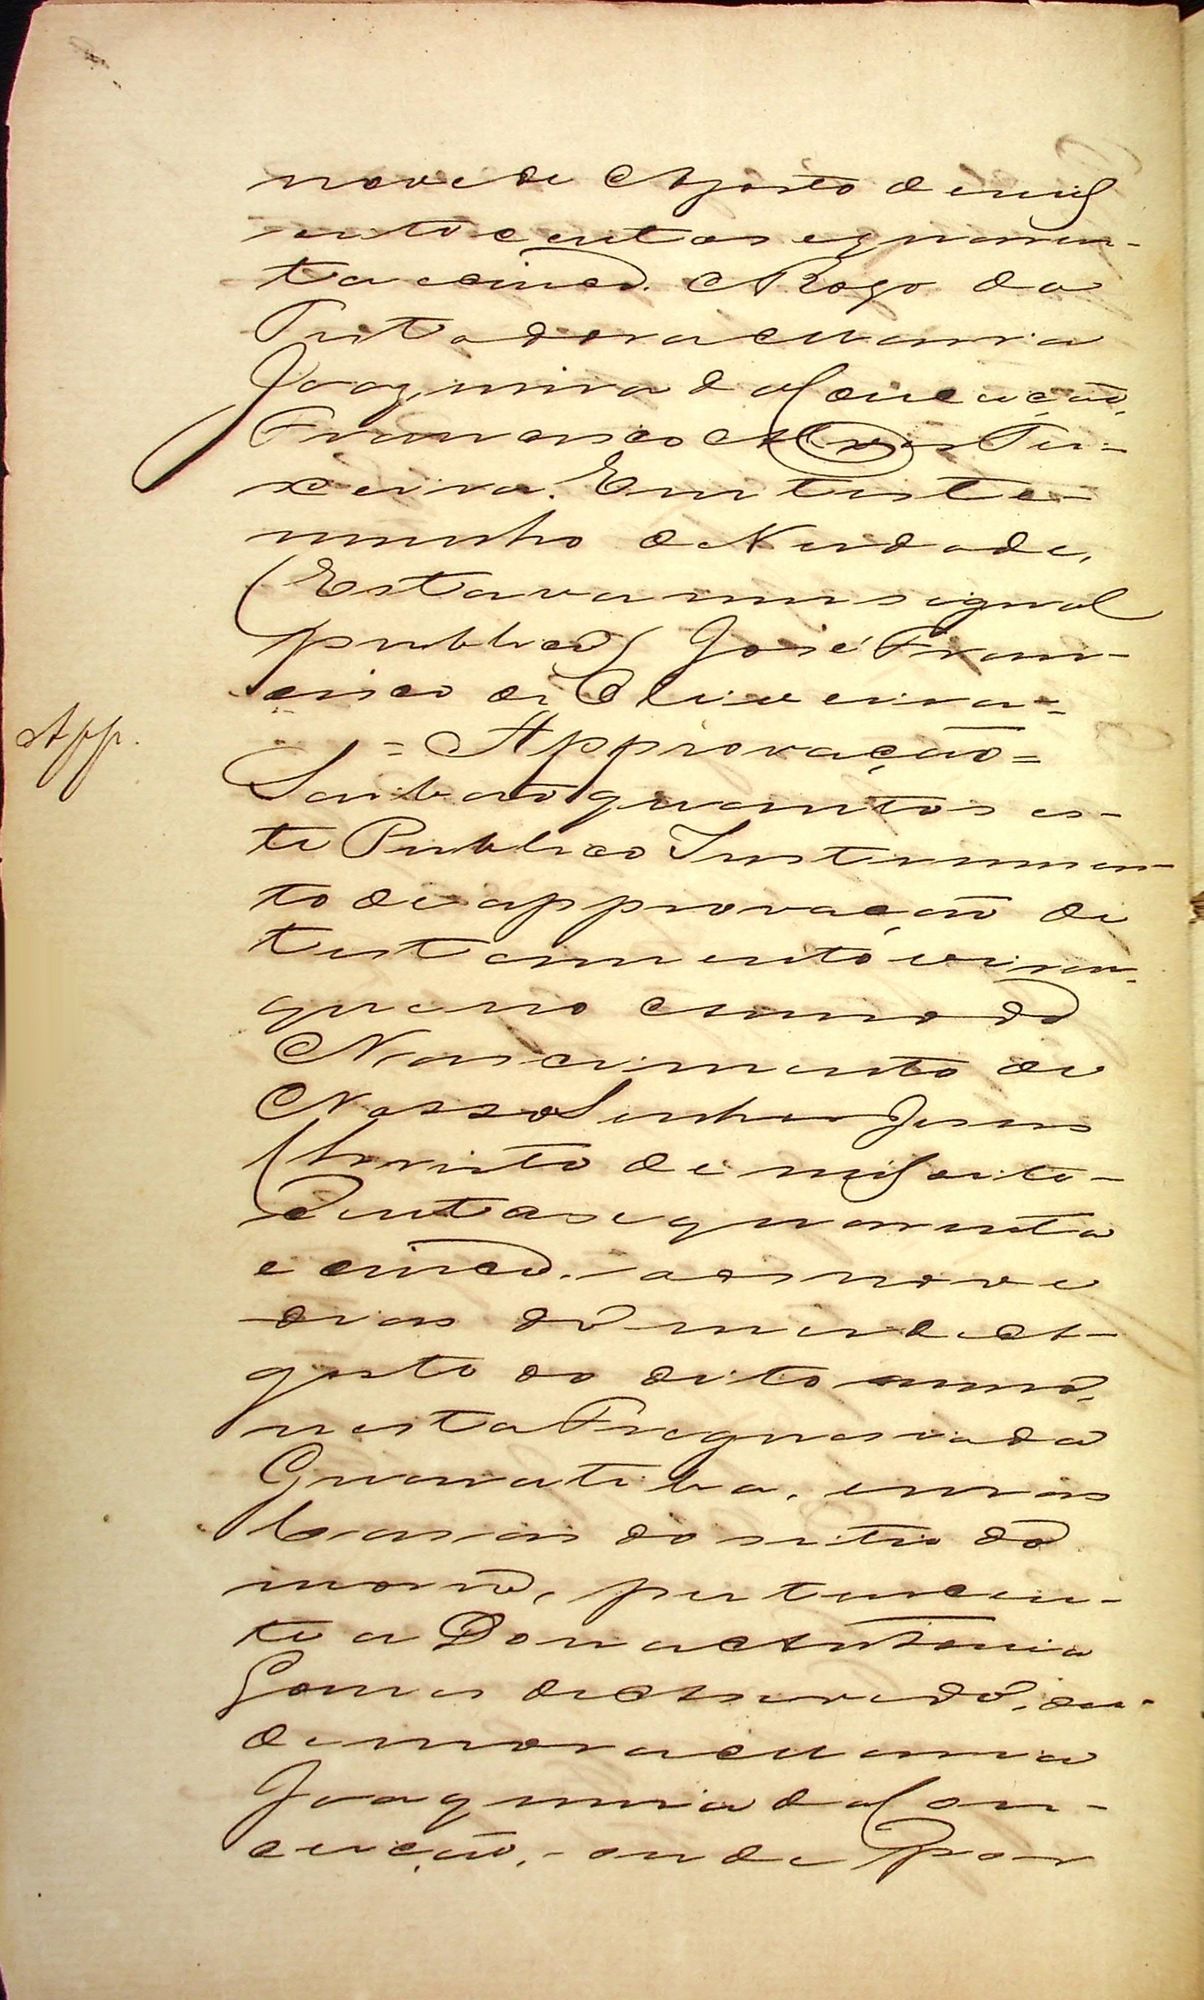 nove de Agosto de mil
oito centos e quaren-
ta e cinco. A Rogo da
Testadora Maria
Joaquina da Conceição,
Francisco Alves Tei-
xeira. Em teste-
munho de Verdade,
(Estava um signal
publico) José Fran-
cisco de Oliveira=
App.
= Approvação=
Saibão quantos es-
te Publico Instrumen-
to de approvação de
testamento virem,
que no Anno do
Nascimento de
Nosso Senhor Jesus
Christo de mil oito-
centos e quarenta
e cinco, aos nove
dias do mes de A-
gosto do dito anno,
nesta Freguesia da
Guaratiba, em as
Casas do sitio do
morro, pertencen-
te a Dona Antonia
Gomes de Asevedo, on-
de mora Maria
Joaquina da Con-
ceição, onde por